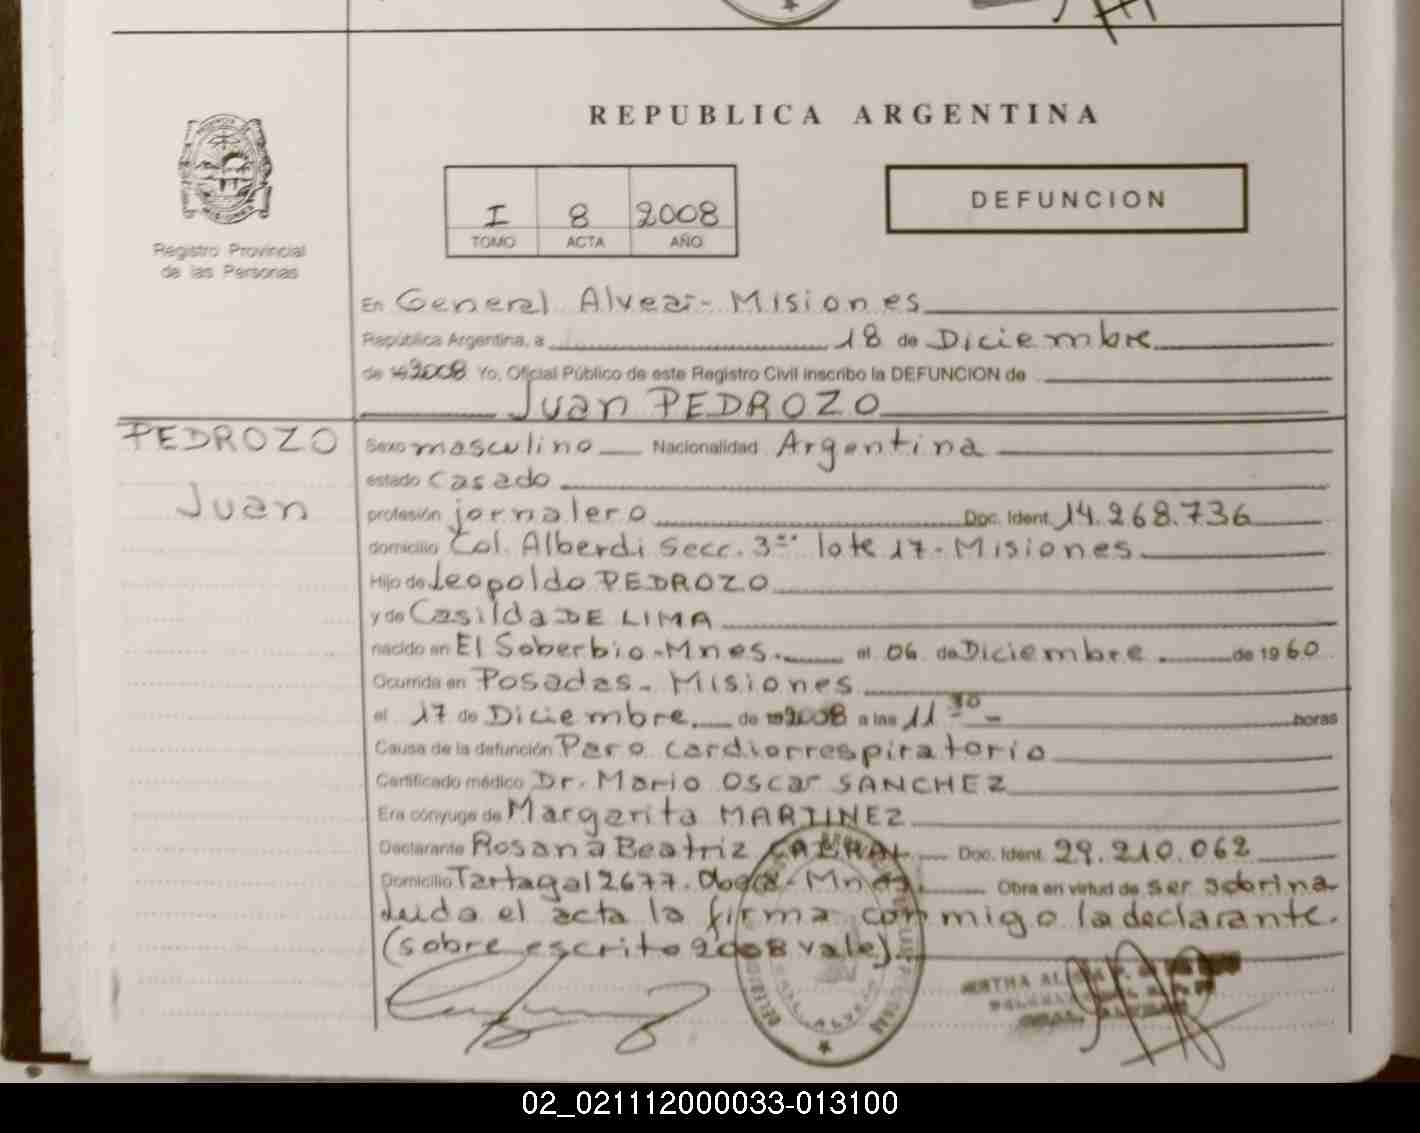 REPUBLICA ARGENTINA
I 8 2008
TOMO ACTA AÑO
DEFUNCION
Registro Provincial
de las Personas
En General Alvear - Misiones
República Argentina, a 18 de Diciembre
de 19 2008 Yo, Oficial Público de este Registro Civil inscribo la DEFUNCION de
Juan PEDROZO
PEDROZO
Juan
Sexo masculino Nacionalidad Argentina
estado Casado
profesión jornalero Doc. Ident. 14.268.736
domicilio Col. Alberdi Secc. 3ra lote 17 - Misiones
Hijo de Leopoldo PEDROZO
y de Casilda DE LIMA
nacido en El Soberbio - Mnes. el 06 de Diciembre de 1960
Ocurrida en Posadas - Misiones
el 17 de Diciembre de 19 2008 a las 11 30 horas
Causa de la defunción Paro cardiorrespiratorio
Certificado médico Dr. Mario Oscar SANCHEZ
Era cónyuge de Margarita MARTINEZ
Declarante Rosana Beatriz CABRAL Doc. Ident. 29.210.062
Domicilio Tartagal 2677. Oberá - Mnes. Obra en virtud de ser sobrina
Leida el acta la firma conmigo la declarante.
(sobre escrito 2008 vale)
02_021112000033-013100